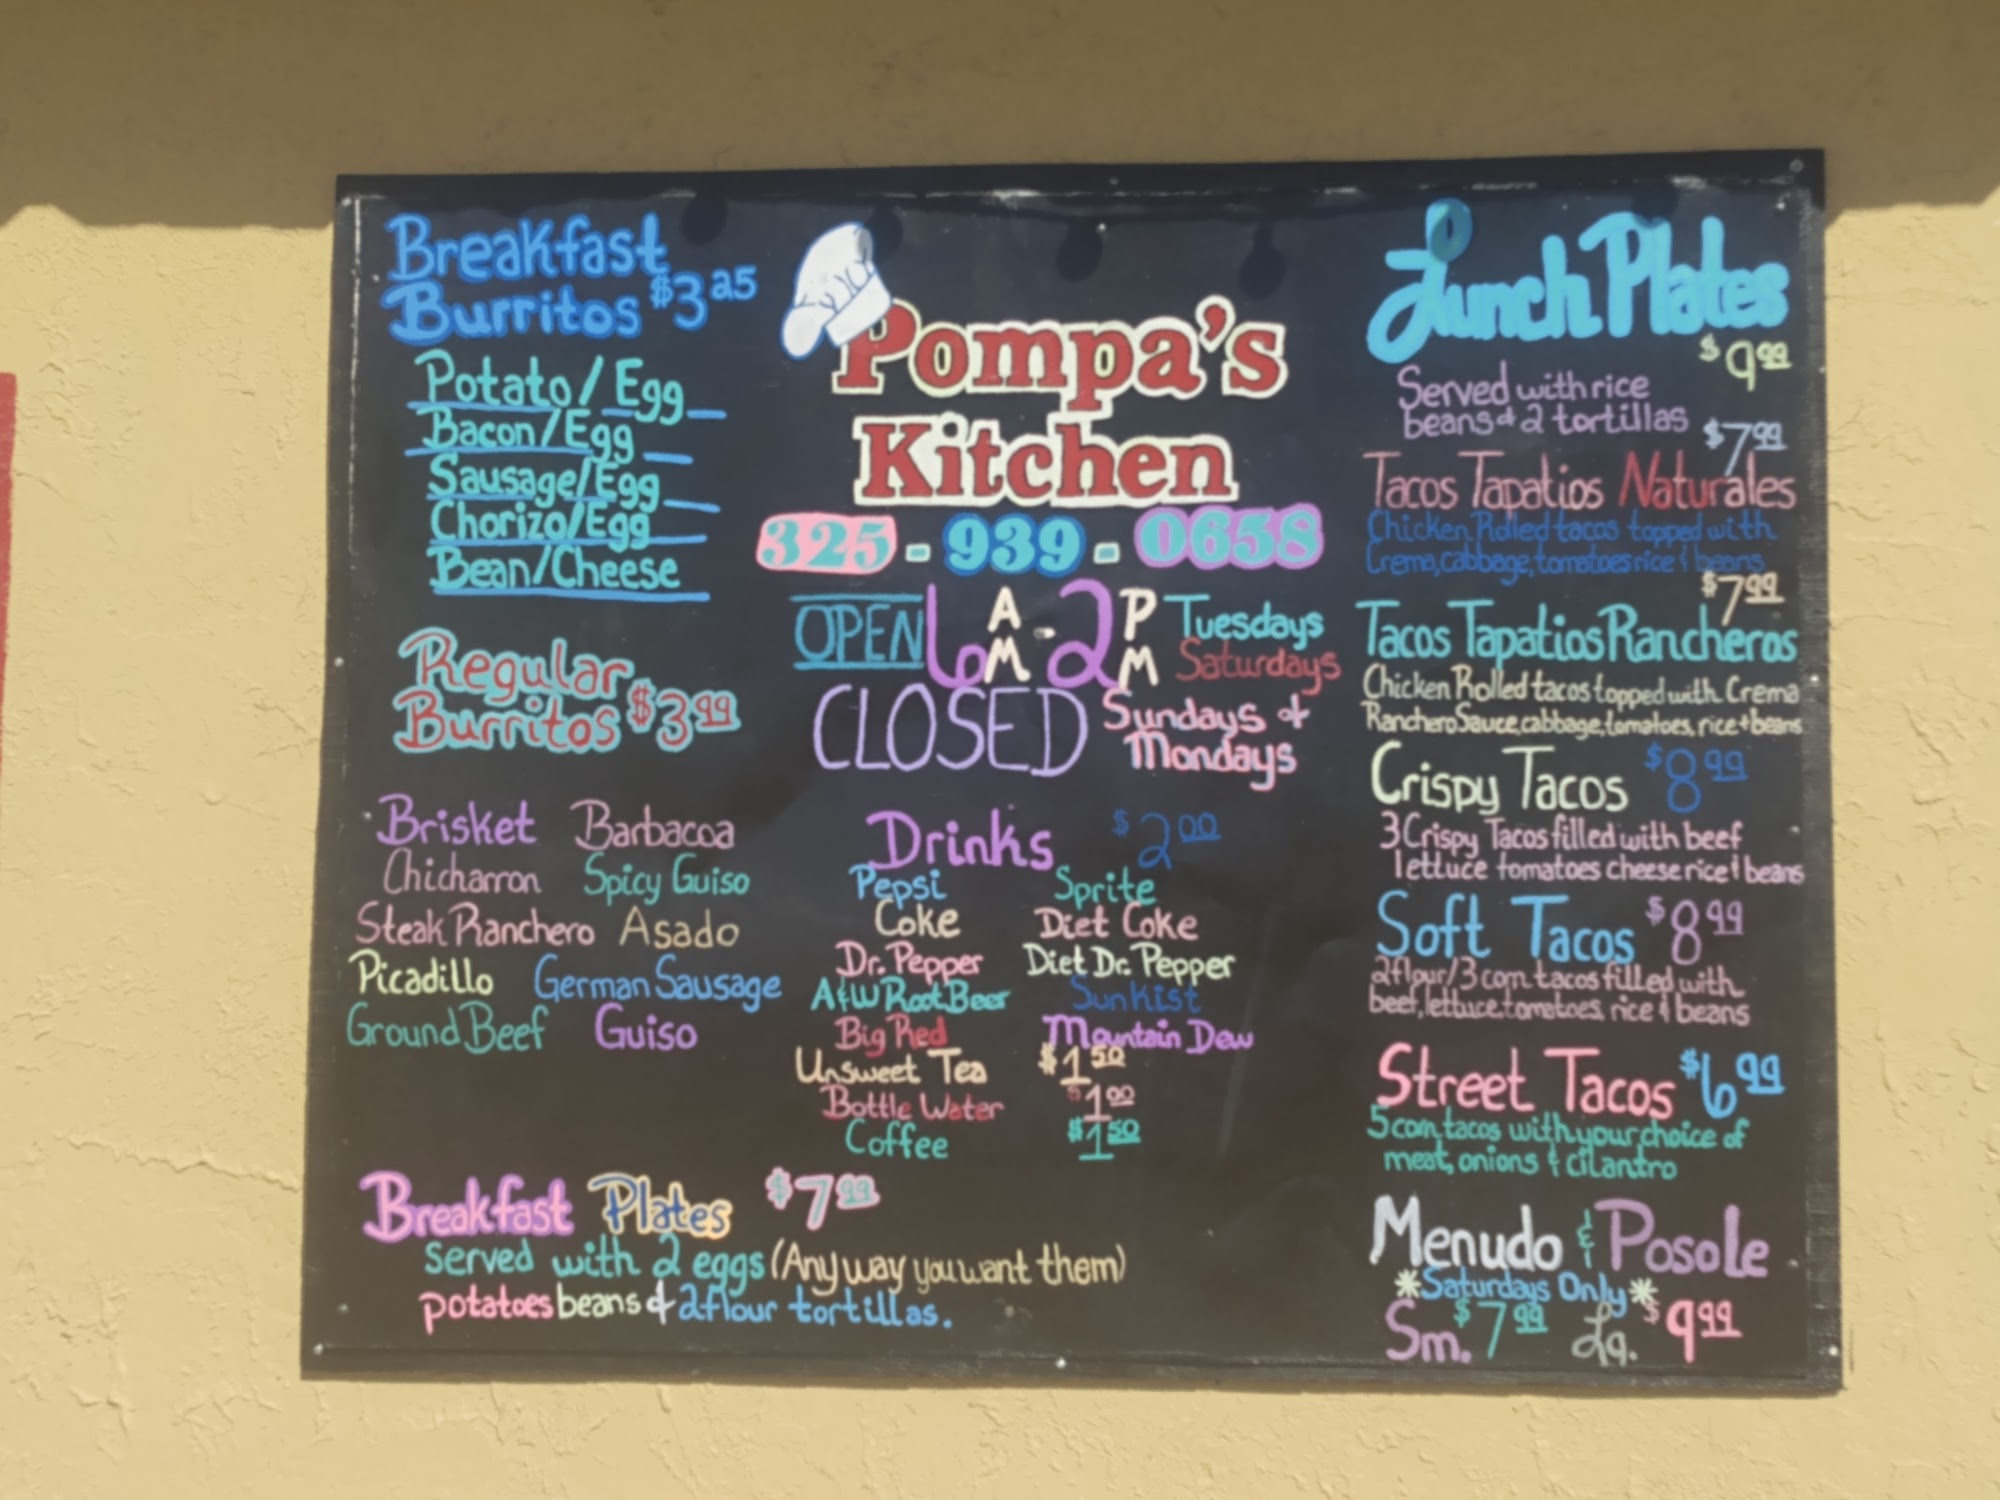 Breakfast
Burritos $3.25
Potato/Egg
Bacon/Egg
Sausage/Egg
Chorizo/Egg
Bean/Cheese
Regular
Burritos $3.99
Brisket Barbacoa
Chicharron Spicy Guiso
Steak Ranchero Asado
Picadillo German Sausage
Ground Beef Guiso
Breakfast Plates $7.99
served with 2 eggs (Any way you want them)
potatoes beans & 2 flour tortillas.
Pompa's
Kitchen
325-939-0658
OPEN 6AM-2PM Tuesdays
Saturdays
CLOSED Sundays &
Mondays
Drinks $2.00
Pepsi Sprite
Coke Diet Coke
Dr. Pepper Diet Dr. Pepper
A&W Root Beer Sunkist
Big Red Mountain Dew
Unsweet Tea $1.50
Bottle Water $1.00
Coffee $1.50
Lunch Plates
$9.99
Served with rice
beans & 2 tortillas
$7.99
Tacos Tapatios Naturales
Chicken Rolled tacos topped with
Crema, cabbage, tomatoes rice & beans
$7.99
Tacos Tapatios Rancheros
Chicken Rolled tacos topped with Crema
Ranchero Sauce, cabbage, tomatoes, rice + beans
Crispy Tacos $8.99
3 Crispy Tacos filled with beef
lettuce tomatoes cheese rice & beans
Soft Tacos $8.99
2 flour/3 corn tacos filled with
beef, lettuce, tomatoes, rice & beans
Street Tacos $6.99
5 corn tacos with your choice of
meat, onions & cilantro
Menudo & Posole
*Saturdays Only*
Sm. $7.99 Lg. $9.99